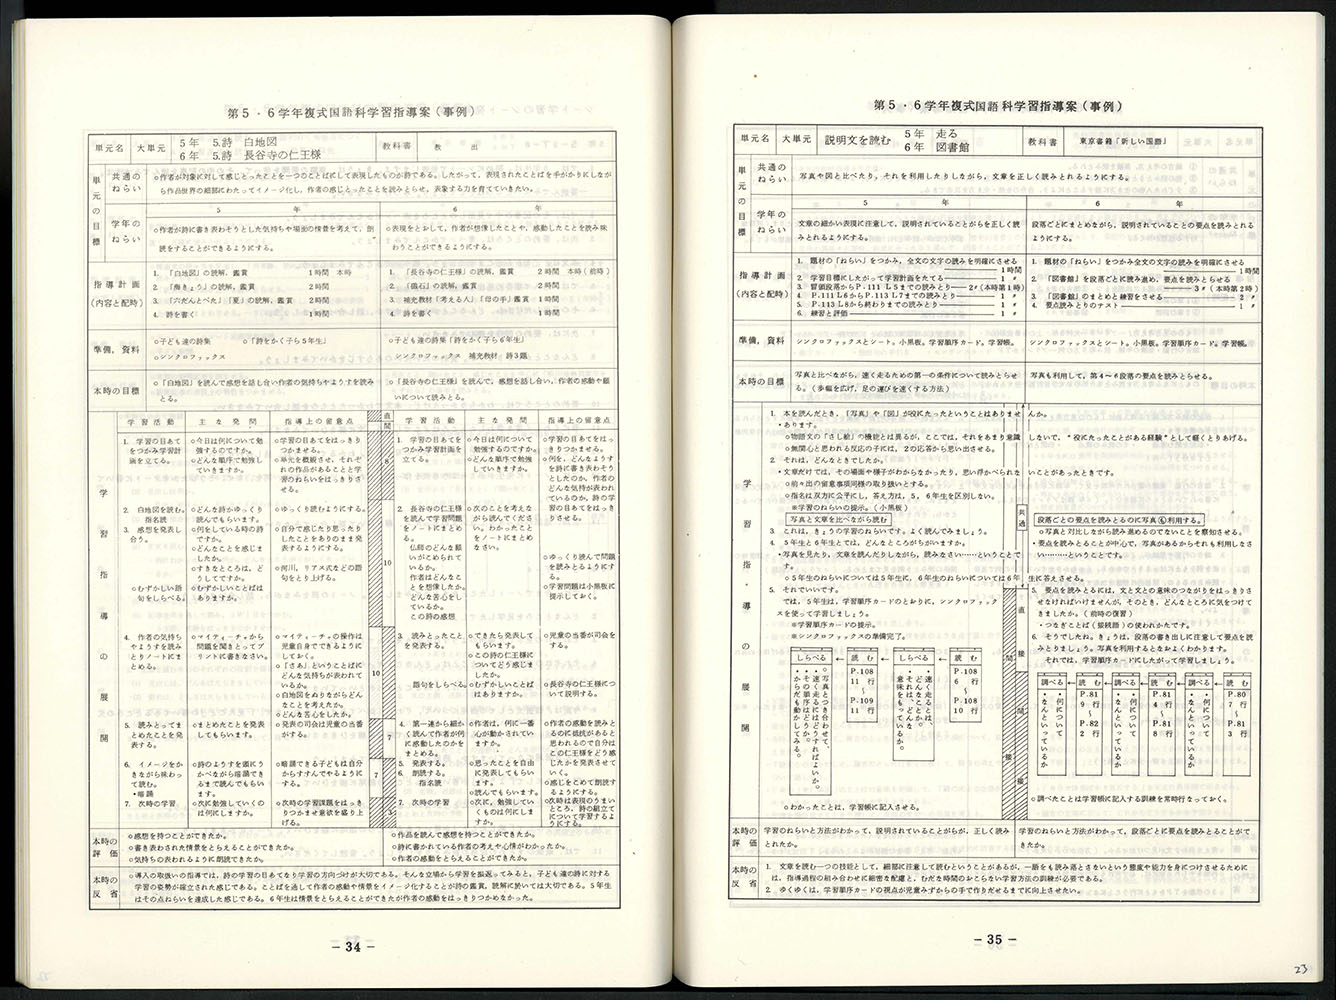 第5・6学年複式国語科学習指導案(事例)
単元名
大単元
5年 5.詩 白地図
6年 5.詩 長谷寺の仁王様
教科書
教 出
単元の目標
共通のねらい
○作者が対象に対して感じとったことを一つのことばにして表現したものが詩である。したがって、表現されたことばを手がかりにしながら作品世界の細部にわたってイメージ化し、作者の感じとったことを読みとらせ、表象する力を育てていきたい。
学年のねらい
5 年
○作者が詩に書き表わそうとした気持ちや場面の情景を考えて、朗読をすることができるようにする。
6 年
○表現をとおして、作者が想像したことや、感動したことを読み味わうことができるようにする。
指導計画
(内容と配時)
1. 「白地図」の読解、鑑賞 1時間 本時
2. 「梅きょう」の読解、鑑賞 2時間
3. 「六だんとべた」「夏」の読解、鑑賞 2時間
4. 詩を書く 1時間
1. 「長谷寺の仁王様」の読解、鑑賞 2時間 本時(前時)
2. 「磁石」の読解、鑑賞 2時間
3. 補充教材「考える人」「母の手」鑑賞 1時間
4. 詩を書く 1時間
準備、資料
○子ども達の詩集 ○「詩をかく子ら5年生」
○シンクロファックス
○子ども達の詩集「詩をかく子ら6年生」
シンクロファックス 補充教材 詩3題
本時の目標
○「白地図」を読んで感想を話し合い作者の気持ちやようすを読みとる。
○「長谷寺の仁王様」を読んで、感想を話し合い、作者の感動や願いについて読みとる。
学習指導の展開
学習活動
主な発問
指導上の留意点
直
間
学習活動
主な発問
指導上の留意点
1. 学習の目あてをつかみ学習計画を立てる。
○今日は何について勉強するのですか。
○どんな順序で勉強していきますか。
○学習の目あてをはっきりつかませる。
○単元を概観させ、それぞれの作品があることと学習のねらいをはっきりさせる。
2. 白地図を読む。
指名読
3. 感想を発表し合う。
○どんな詩かゆっくり読んでもらいます。
○何をしている時の詩ですか。
○どんなことを感じましたか。
○すきなところは、どうしてですか。
○ゆっくり読むようにする。
○自分で感じたり思ったりしたことをありのまま発表するようにする。
○河川、リアス式などの語句をとり上げる。
○むずかしい語句をしらべる。
○むずかしいことばはありますか。
4. 作者の気持ちやようすを読みとりノートにまとめる。
○マイティーチャから問題を聞きとってプリントに書きなさい。
○マイティーチャの操作は児童自身でできるようにしておく。
○「さあ」ということばにどんな気持ちが表われているか。
○白地図をぬりながらどんなことを考えたか。
○どんな苦心をしたか。
5. 読みとってまとめたことを発表する。
○まとめたことを発表してもらいます。
○発表の司会は児童の当番がする。
6. イメージをかきながら味わって読む。
・暗誦
○詩のようすを頭にうかべながら暗誦できるまで読んでもらいます。
○暗誦できる子どもは自分からすすんでやるようにする。
7. 次時の学習
○次に勉強していくのは何にしますか。
○次時の学習課題をはっきりつかませ意欲を盛り上げる。
8
10
10
7
7
3
1. 学習の目あてをつかみ学習計画を立てる。
○今日は何について勉強するのですか。
○どんな順序で勉強していきますか。
○学習の目あてをはっきりつかませる。
○何を、どんなようすを詩に書き表わそうとしたのか、作者のどんな気持が表われているのか、詩の学習の目あてをはっきりさせる。
2. 長谷寺の仁王様を読んで学習問題をノートにまとめる。
仏師のどんな願いがこめられているか。
作者はどんなことを想像したか。
どんな苦心をしているか。
この詩の感想
○次のことを考えながら読んでください。わかったことをノートにまとめなさい。
○ゆっくり読んで問題を読みとるようにする。
○学習問題は小黒板に提示しておく。
3. 読みとったことを発表する。
○できたら発表してもらいます。
○この詩の仁王様についてどう感じましたか。
○児童の当番が司会をする。
語句をしらべる。
○むずかしいことばはありますか。
○長谷寺の仁王様について説明する。
4. 第一連から細かく読んで作者が何に感動したのかをまとめる。
○作者は、何に一番心が動かされていますか。
○作者の感動を読みとるのに抵抗があると思われるので自分はこの仁王様をどう感じたかを発表させていく。
5. 発表する。
6. 朗読する。
指名読
○思ったことを自由に発表してもらいます。
○読んでもらいます。
○感じをこめて朗読するようにする。
7. 次時の学習
○次に、勉強していくものは何にしますか。
○次時は表現のうまいところ、詩の組立てについて学習するようにする。
本時の評価
○感想を持つことができたか。
○書き表わされた情景をとらえることができたか。
○気持ちの表われるように朗読できたか。
○作品を読んで感想を持つことができたか。
○詩に書かれている作者の考えや心情がわかったか。
○作者の感動をとらえることができたか。
本時の反省
○導入の取扱いの指導では、詩の学習の目あてなり学習の方向づけが大切である。そんな立場から学習を振返ってみると、子ども達の詩に対する学習の姿勢が確立された感じである。ことばを通して作者の感動や情景をイメージ化することが詩の鑑賞、読解に於いては大切である。5年生はその点ねらいを達成した感じである。6年生は情景をとらえることができたが作者の感動をはっきりつかめなかった。
－34－
第5・6学年複式国語科学習指導案(事例)
単元名
大単元
説明文を読む
5年 走る
6年 図書館
教科書
東京書籍「新しい国語」
単元の目標
共通のねらい
写真や図と比べたり、それを利用したりしながら、文章を正しく読みとれるようにする。
学年のねらい
5 年
文章の細かい表現に注意して、説明されていることがらを正しく読みとれるようにする。
6 年
段落ごとにまとめながら、説明されていることの要点を読みとれるようにする。
指導計画
(内容と配時)
1. 題材の「ねらい」をつかみ、全文の文字の読みを明確にさせる
2. 学習目標にしたがって学習計画をたてる 1時間
3. 冒頭段落からP.111 L5までの読みとり 2〃(本時第1時)
4. P.111 L6からP.113 L7までの読みとり 1〃
5. P.113 L8から終わりまでの読みとり 1〃
6. 練習と評価 1〃
1. 題材の「ねらい」をつかみ全文の文字の読みを明確にさせる 1時間
2. 「図書館」を段落ごとに読み進め、要点を読みとらせる 3〃(本時第2時)
3. 「図書館」のまとめと練習をさせる 2〃
4. 要点読みとりのテスト 1〃
準備、資料
シンクロファックスとシート。小黒板。学習順序カード。学習帳。
シンクロファックスとシート。小黒板。学習順序カード。学習帳。
本時の目標
写真と比べながら、速く走るための第一の条件について読みとらせる。(歩幅を広げ、足の運びを速くする方法)
写真も利用して、第4～6段落の要点を読みとらせる。
学習指導の展開
1. 本を読んだとき、「写真」や「図」が役にたったということはありませんか。
・あります。
○物語文の「さし絵」の機能とは異るが、ここでは、それをあまり意識しないで、"役にたったことがある経験"として軽くとりあげる。
○無関心と思われる反応の子には、2の応答から思い出させる。
2. それは、どんなときでしたか。
・文章だけでは、その場面や様子がわからなかったり、思い浮かべられないことがあったときです。
○前々出の留意事項同様の取り扱いとする。
○指名は双方に公平にし、答え方は、5、6年生を区別しない。
※学習のねらいの提示。(小黒板)
写真と文章を比べながら読む
共通
段落ごとの要点を読みとるのに写真も利用する。
3. これは、きょうの学習のねらいです。よく読んでみましょう。
○写真と対比しながら読み進めるのでないことを察知させる。
4. 5年生と6年生とでは、どんなところがちがいますか。
・写真を見たり、文章を読んだりしながら、読みなさい……ということです。
・要点を読みとることが中心で、写真があるからそれも利用しなさい………ということです。
○5年生のねらいについては5年生に、6年生のねらいについては6年生に答えさせる。
5. それでいいです。
では、5年生は、学習順序カードのとおりに、シンクロファックスを使って学習しましょう。
※学習順序カードの提示。
※シンクロファックスの準備完了。
読む
P.108 6行～P.108 10行
しらべる
・速く走ることは、どんなことか。
・それはどんな意味をもっているか。
読む
P.108 11行～P.109 11行
しらべる
○写真とつき合わせて、
・速く走るにはどうすればよいか。
・その順序はどうか。
・からだも動かしてみる。
○わかったことは、学習帳に記入させる。
間
直接
間接
5. 要点を読みとるには、文と文との意味のつながりをはっきりさせなければいけませんが、そのとき、どんなところに気をつけてきましたか。(前時の復習)
・つなぎことば(接続語)の使われかたです。
6. そうでしたね。きょうは、段落の書き出しに注意して要点を読みとりましょう。写真を利用するとなおよくわかります。
それでは、学習順序カードにしたがって学習しましょう。
読む
P.80 7行～P.81 3行
調べる
・何について
・なんといっているか
読む
P.81 4行～P.81 8行
調べる
・何について
・なんといっているか
読む
P.81 9行～P.82 2行
調べる
・何について
・なんといっているか
○調べたことは学習帳に記入する訓練を常時行なっておく。
本時の評価
学習のねらいと方法がわかって、説明されていることがらが、正しく読みとれたか。
学習のねらいと方法がわかって、段落ごとに要点を読みとることができたか。
本時の反省
1. 文章を読む一つの技能として、細部に注意して読むということがあるが、一語をも読み落とさないという態度や能力を身につけさせるためには、指導過程の組み合わせに細密な配慮と、むだな時間のおこらない学習方法の訓練が必要である。
2. ゆくゆくは、学習順序カードの視点が児童みずからの手で作りだせるまでに向上させたい。
－35－
23